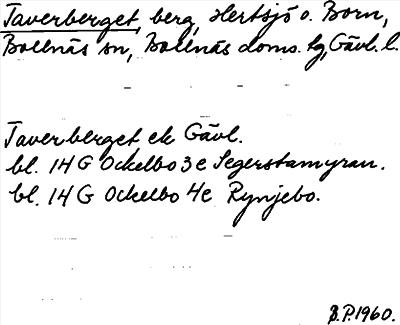 Taverberget, berg, Hertsjö o. Born,
Bollnäs sn, Bollnäs doms. lg, Gävl. l.
Taverberget ek Gävl.
bl. 14 G Ockelbo 3e Segerstamyran.
bl. 14 G Ockelbo 4e Rynjebo.
B.P. 1960.